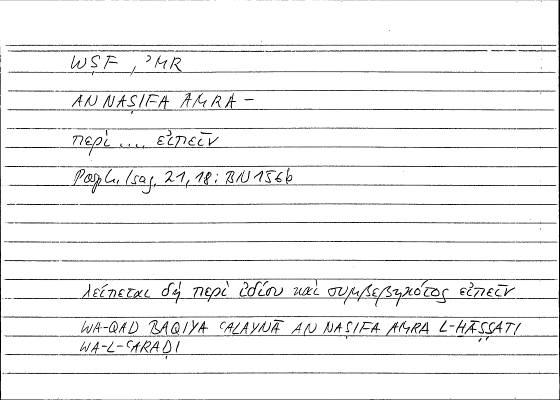 WṢF , ʾMR
AN NAṢIFA AMRA –
περὶ .... εἰπεῖν
Porph. Isag. 21, 18: BN 156b
λείπεται δὴ περὶ ἰδίου καὶ συμβεβηκότος εἰπεῖν
WA-QAD BAQIYA ʿALAYNĀ AN NAṢIFA AMRA L-ḪĀṢṢATI
WA-L-ʿARAḌI